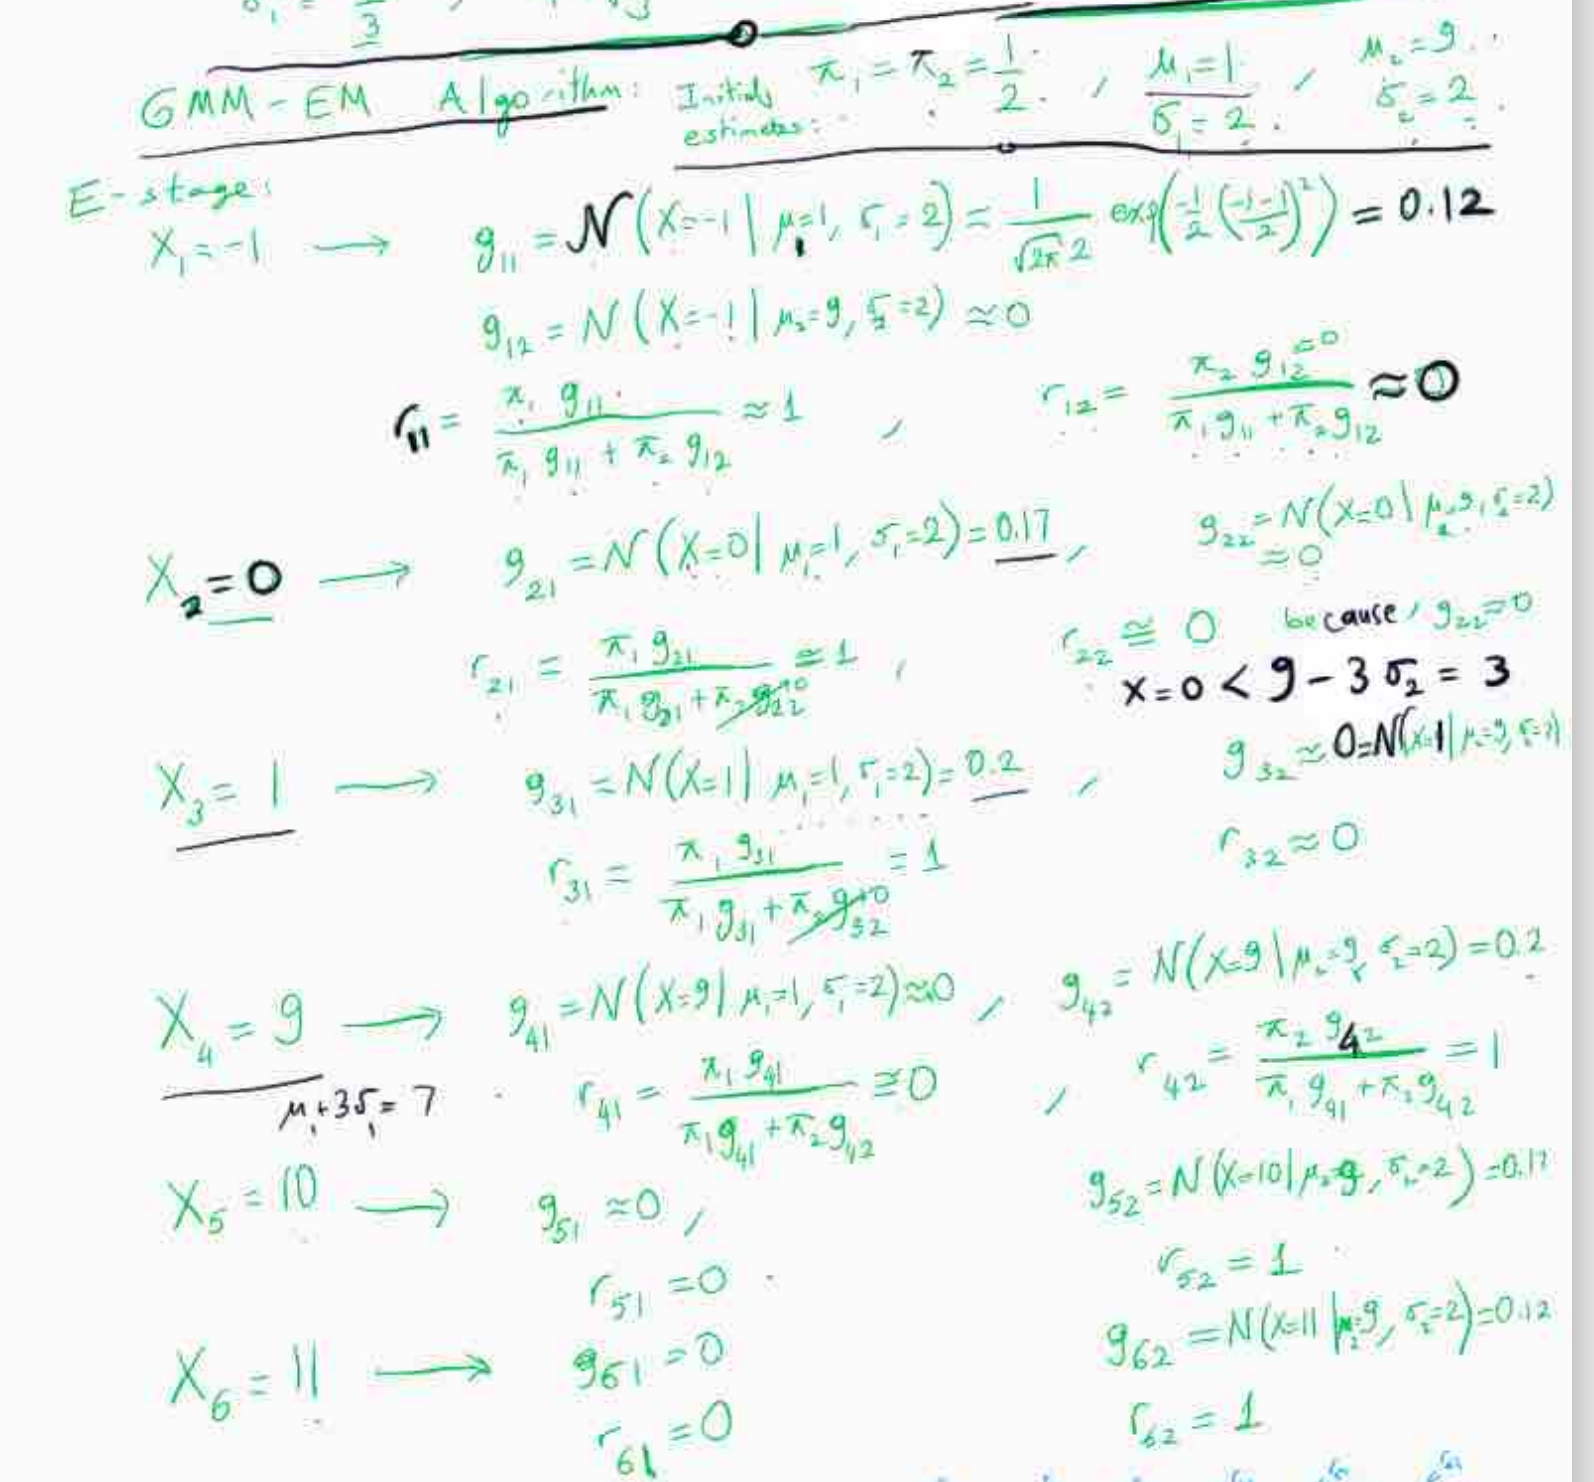 3
GMM - EM Algorithm: Initial estimates: π₁ = π₂ = 1/2 , μ₁ = 1 σ₁ = 2 , μ₂ = 9 σ₂ = 2
E-stage:
X₁ = -1 → g₁₁ = N(X=-1 | μ₁=1, σ₁=2) = 1/(√2π 2) exp(-1/2 ((-1-1)/2)²) = 0.12
g₁₂ = N(X=-1 | μ₂=9, σ₂=2) ≈ 0
r₁₁ = π₁ g₁₁ / (π₁ g₁₁ + π₂ g₁₂) ≈ 1 , r₁₂ = π₂ g₁₂ ≈0 / (π₁ g₁₁ + π₂ g₁₂) ≈ 0
X₂ = 0 → g₂₁ = N(X=0 | μ₁=1, σ₁=2) = 0.17 , g₂₂ = N(X=0 | μ₂=9, σ₂=2) ≈ 0
r₂₁ = π₁ g₂₁ / (π₁ g₂₁ + π₂ g₂₂ ≈0) ≅ 1 , r₂₂ ≅ 0 because, g₂₂ ≈ 0
x = 0 < 9 - 3 σ₂ = 3
X₃ = 1 → g₃₁ = N(X=1 | μ₁=1, σ₁=2) = 0.2 , g₃₂ ≈ 0 = N(x=1 | μ₂=9, σ₂=2)
r₃₁ = π₁ g₃₁ / (π₁ g₃₁ + π₂ g₃₂ ≈0) = 1 r₃₂ ≈ 0
X₄ = 9 → g₄₁ = N(X=9 | μ₁=1, σ₁=2) ≈ 0 , g₄₂ = N(X=9 | μ₂=9, σ₂=2) = 0.2
μ₁ + 3σ₁ = 7 r₄₁ = π₁ g₄₁ / (π₁ g₄₁ + π₂ g₄₂) ≅ 0 , r₄₂ = π₂ g₄₂ / (π₁ g₄₁ + π₂ g₄₂) = 1
X₅ = 10 → g₅₁ ≈ 0 , g₅₂ = N(X=10 | μ₂=9, σ₂=2) = 0.17
r₅₁ = 0 r₅₂ = 1
X₆ = 11 → g₆₁ = 0 g₆₂ = N(X=11 | μ₂=9, σ₂=2) = 0.12
r₆₁ = 0 r₆₂ = 1